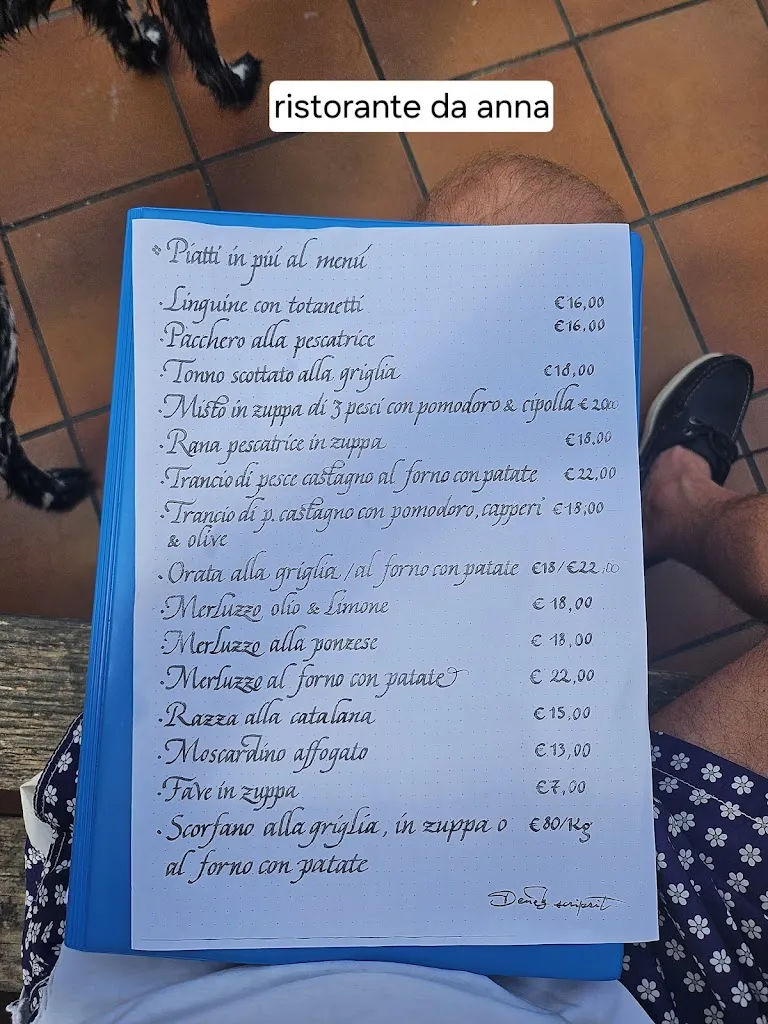 ristorante da anna
Piatti in piú al menú
· Linguine con totanetti €16,00
· Pacchero alla pescatrice €16,00
· Tonno scottato alla griglia €18,00
· Misto in zuppa di 3 pesci con pomodoro & cipolla €20,00
· Rana pescatrice in zuppa €18,00
· Trancio di pesce castagno al forno con patate €22,00
· Trancio di p. castagno con pomodoro, capperi €18,00
& olive
· Orata alla griglia / al forno con patate €18/€22,00
· Merluzzo olio & limone €18,00
· Merluzzo alla ponzese €18,00
· Merluzzo al forno con patate €22,00
· Razza alla catalana €15,00
· Moscardino affogato €13,00
· Fave in zuppa €7,00
· Scorfano alla griglia, in zuppa o €80/Kg
al forno con patate
scripsit